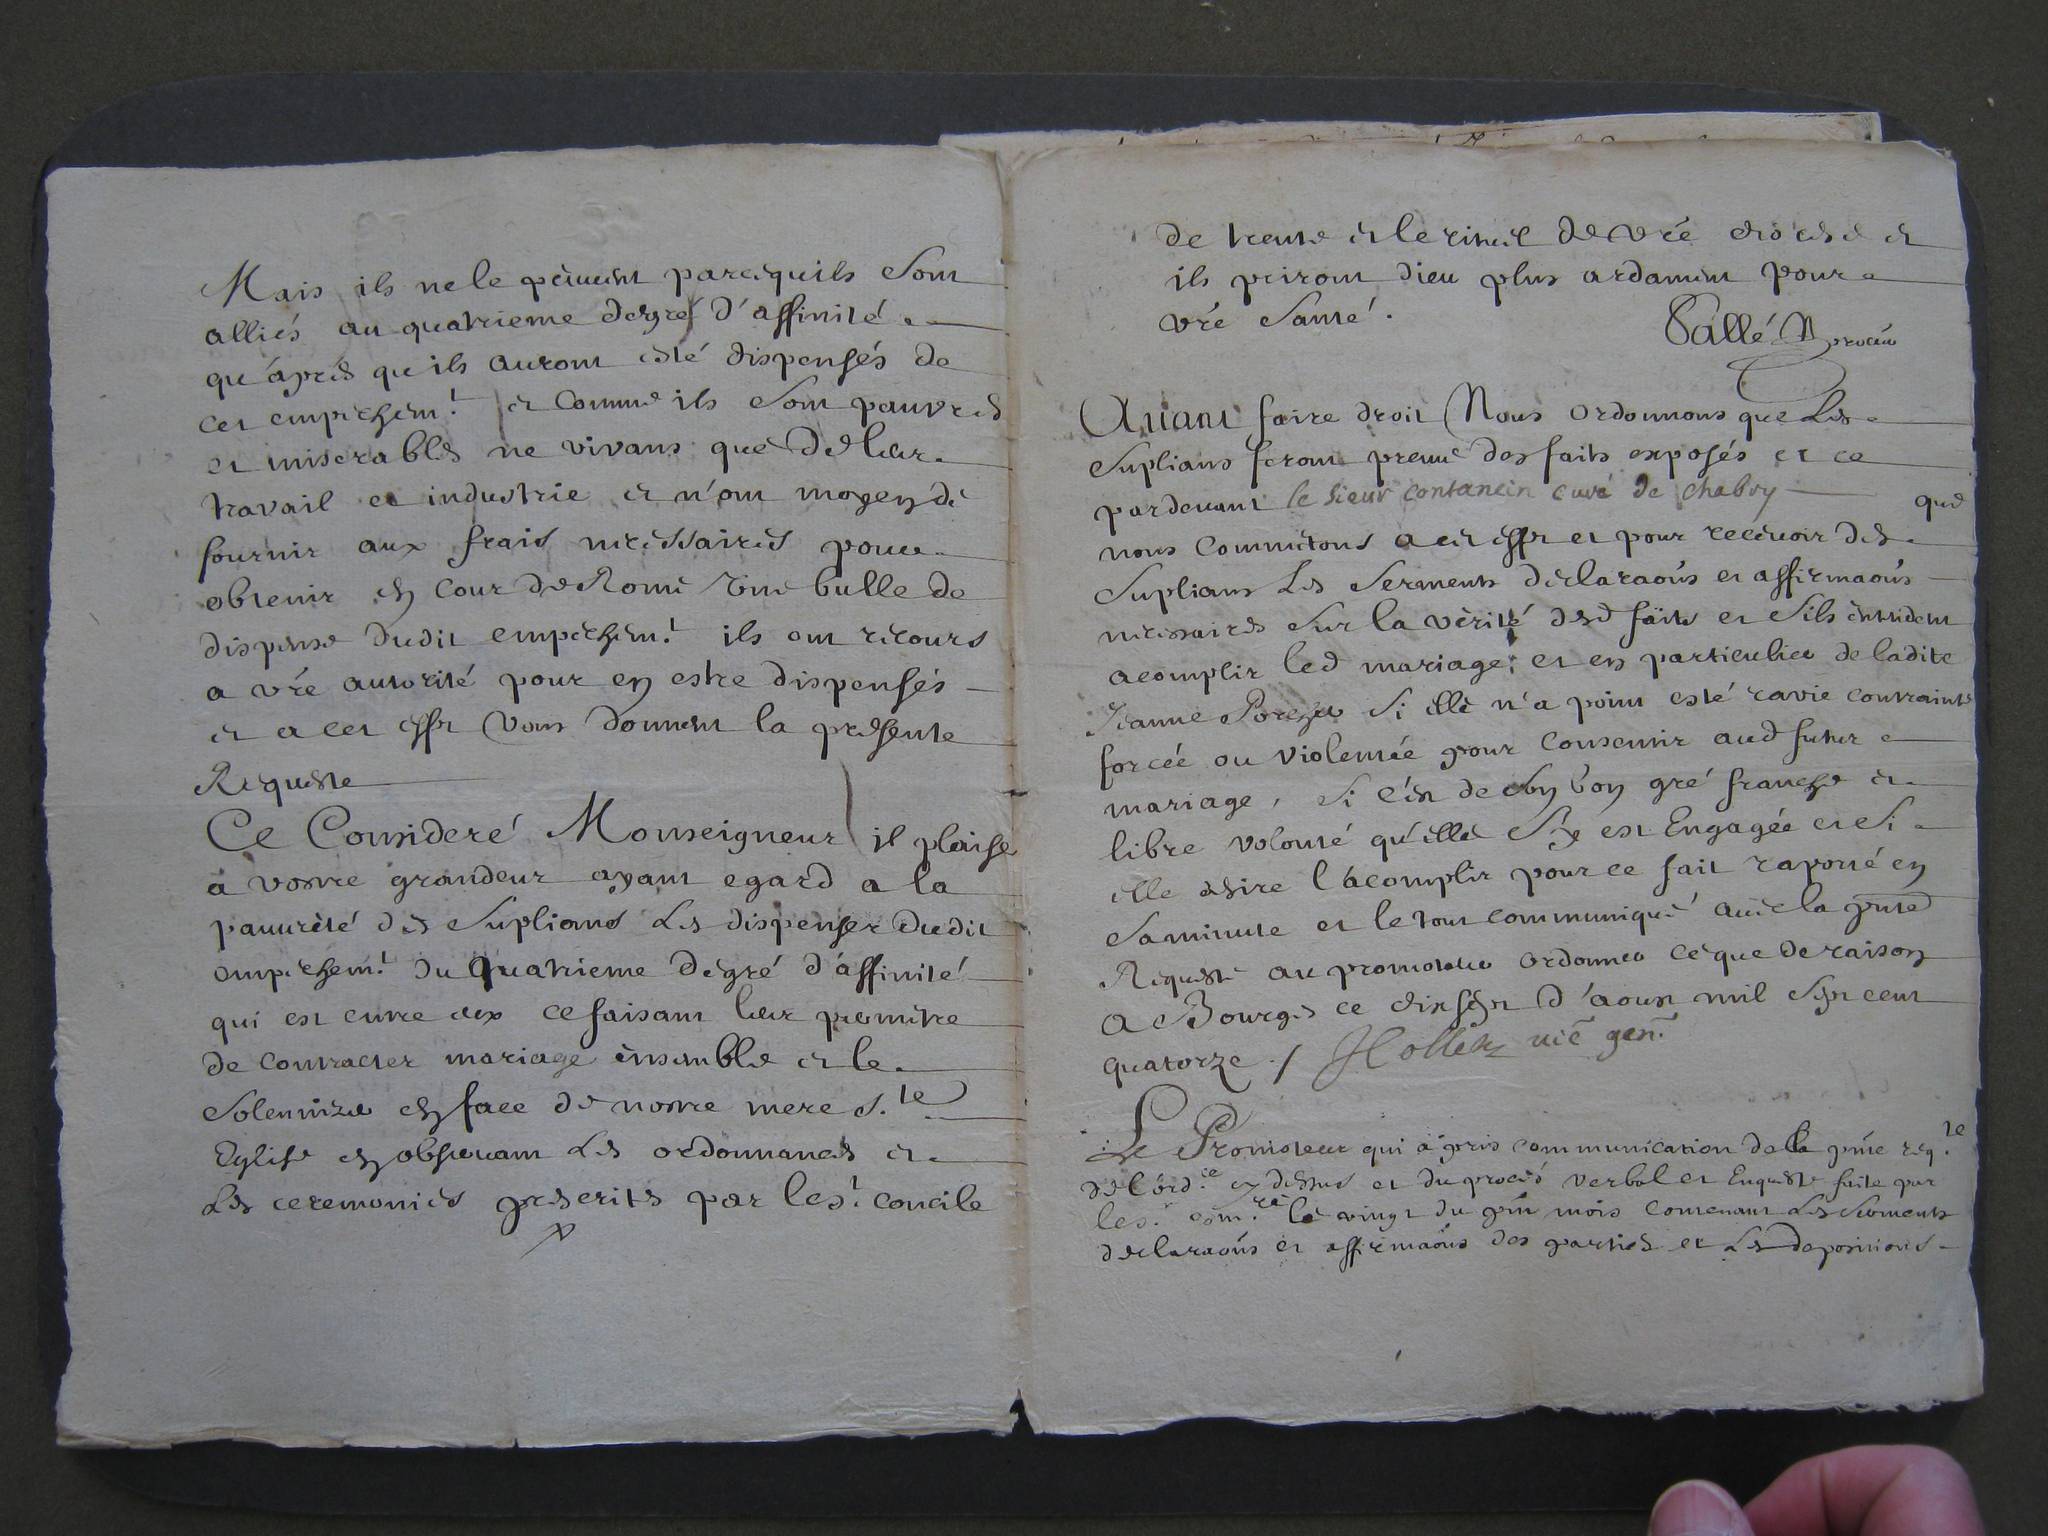 Mais ils ne le peuuent parcequils sont
alliés au quatrieme degré d'affinité
qu'aprés qu'ils auront esté dispensés de
cet empeschem.t et comme ils sont pauvres
et miserables ne vivans que de leur
travail et industrie et n'ont moyen de
fournir aux frais necessaires pour
obtenir en cour de Rome une bulle de
dispense dudit empeschem.t ils ont recours
a vre autorité pour en estre dispensés
et a cet effet vous donnent la presente
Requeste
Ce Consideré Monseigneur il plaise
a vostre grandeur ayant egard a la
pauureté des suplians les dispenser dudit
empeschem.t du quatrieme degré d'affinité
qui est entre eux ce faisant leur permetre
de contracter mariage ensemble et le
solennizer en face de nostre mere s.te
Eglise en obseruant les ordonnances et
les ceremonies prescrites par le st. concile
de trente et le rituel de vre diocese et
ils priront dieu plus ardament pour
vre santé.
Pallé Procur
Auant faire droit Nous ordonnons que les
suplians feront preuue des faits exposés et ce
pardeuant le sieur contancin curé de chabry que
nous commetons a cet effet et pour receuoir des
suplians les serments declaraons et affirmaons
necessaires sur la vérité desd faits et sils entendent
acomplir led mariage; et en particulier de ladite
Jeanne si elle n'a point esté ravie contrainte
forcée ou violentée pour consentir aud futur
mariage, si c'est de son bon gré franche et
libre volonté qu'elle s'y est Engagée et si
elle desire l'acomplir pour ce fait raporté en
sa minute et le tout communiqué auec la pnte
Requeste au promoteur ordonner ce que de raison
a Bourges ce dix sept d'aoust mil sept cent
quatorze ./ vic gen.
Le Promoteur qui a pris communication de la pnte req.te
de l'ord.ce cy dessus et du procés verbal et Enqueste faite par
le s.r com.re le vingt du pnt mois contenant les serments
declaraons et affirmaons des parties et les depositions